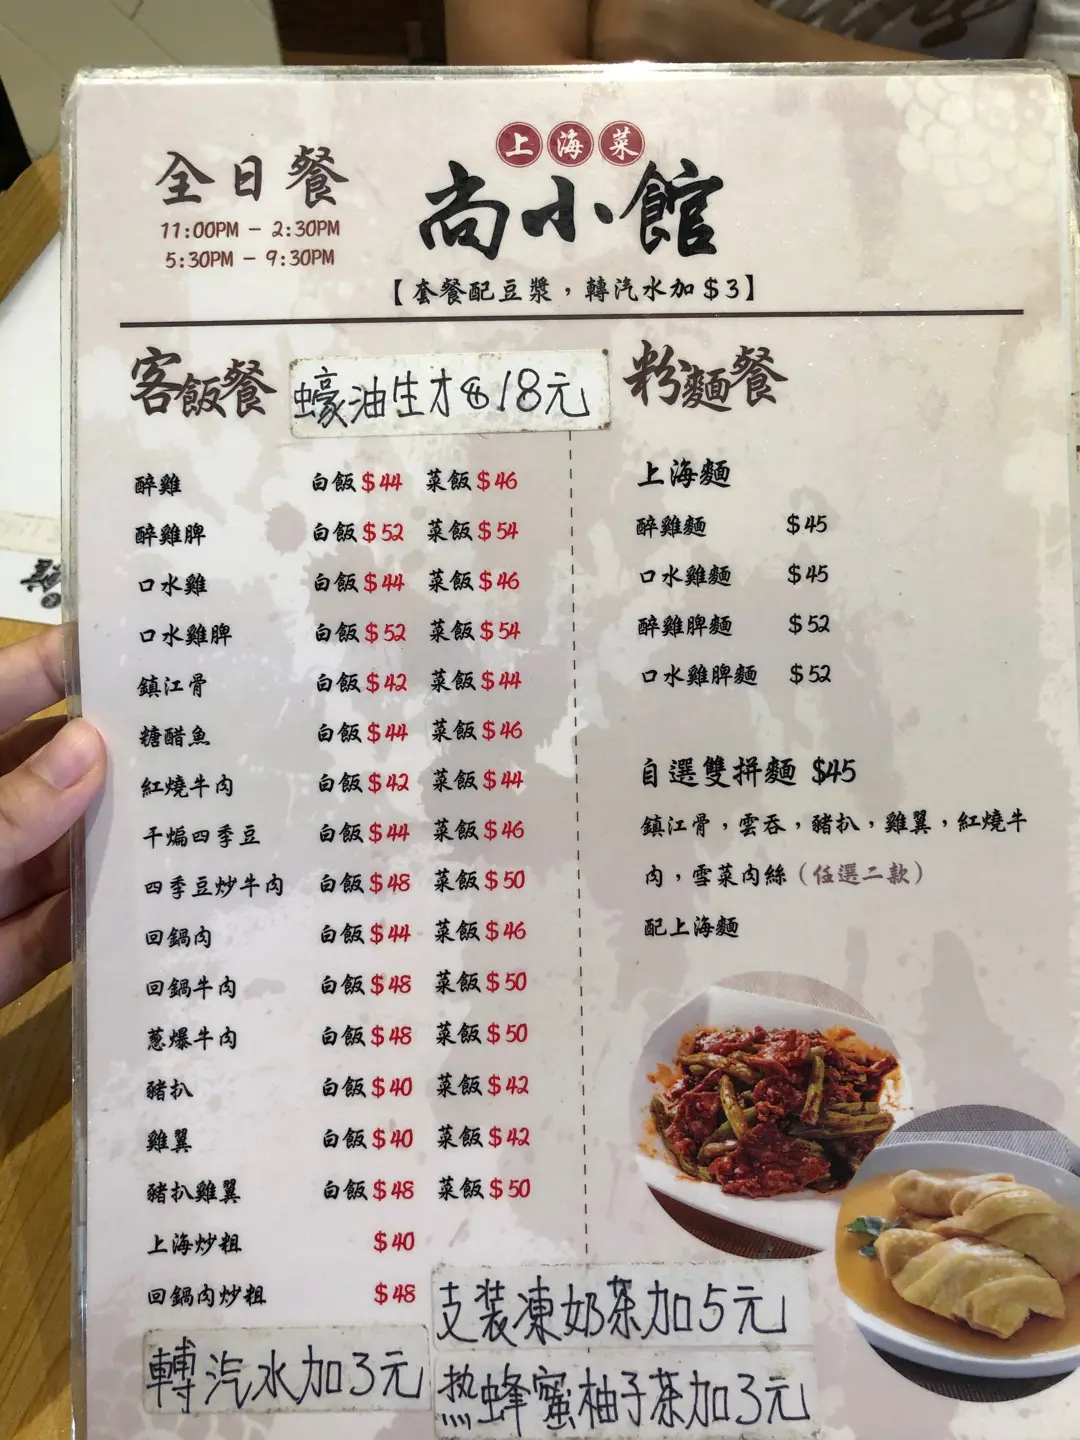 上海菜
尚小館
全日餐
11:00PM - 2:30PM
5:30PM - 9:30PM
【套餐配豆漿，轉汽水加$3】
客飯餐
蠔油生才$18元
醉雞 白飯$44 菜飯$46
醉雞脾 白飯$52 菜飯$54
口水雞 白飯$44 菜飯$46
口水雞脾 白飯$52 菜飯$54
鎮江骨 白飯$42 菜飯$44
糖醋魚 白飯$44 菜飯$46
紅燒牛肉 白飯$42 菜飯$44
干煸四季豆 白飯$44 菜飯$46
四季豆炒牛肉 白飯$48 菜飯$50
回鍋肉 白飯$44 菜飯$46
回鍋牛肉 白飯$48 菜飯$50
蔥爆牛肉 白飯$48 菜飯$50
豬扒 白飯$40 菜飯$42
雞翼 白飯$40 菜飯$42
豬扒雞翼 白飯$48 菜飯$50
上海炒粗 $40
回鍋肉炒粗 $48
粉麵餐
上海麵
醉雞麵 $45
口水雞麵 $45
醉雞脾麵 $52
口水雞脾麵 $52
自選雙拼麵 $45
鎮江骨，雲吞，豬扒，雞翼，紅燒牛
肉，雪菜肉絲（任選二款）
配上海麵
轉汽水加3元
支裝凍奶茶加5元
热蜂蜜柚子茶加3元